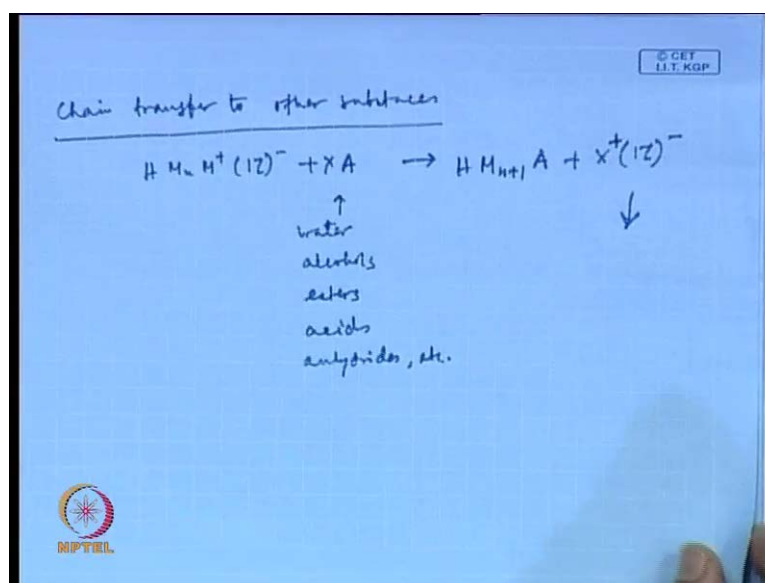 © CET
I.I.T. KGP
Chain transfer to other substances
H Mn M⁺ (IZ)⁻ + XA → H Mn+1 A + X⁺(IZ)⁻
↑ ↓
water
alcohols
esters
acids
anhydrides, etc.
NPTEL